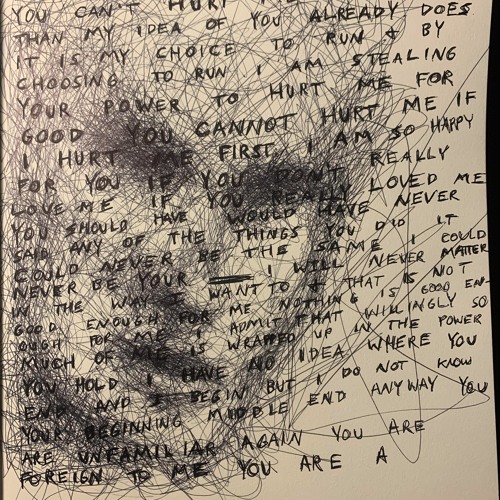 YOU CAN'T HURT ME
THAN MY IDEA OF YOU ALREADY DOES
IT IS MY CHOICE TO RUN & BY
CHOOSING TO RUN I AM STEALING
YOUR POWER TO HURT ME FOR
GOOD YOU CANNOT HURT ME IF
I HURT ME FIRST. I AM SO HAPPY
FOR YOU IF YOU DON'T REALLY
LOVE ME IF YOU REALLY LOVED ME
YOU SHOULD HAVE WOULD HAVE NEVER
SAID ANY OF THE THINGS YOU DID IT
COULD NEVER BE THE SAME I COULD
NEVER BE YOUR I WILL NEVER MATTER
IN THE WAY I WANT TO & THAT IS NOT
GOOD ENOUGH FOR ME NOTHING IS GOOD EN-
OUGH FOR ME I ADMIT THAT WILLINGLY SO
MUCH OF ME IS WRAPPED UP IN THE POWER
YOU HOLD I HAVE NO IDEA WHERE YOU
END AND I BEGIN BUT I DO NOT KNOW
YOUR BEGINNING MIDDLE END ANYWAY YOU
ARE UNFAMILIAR AGAIN YOU ARE
FOREIGN TO ME YOU ARE A